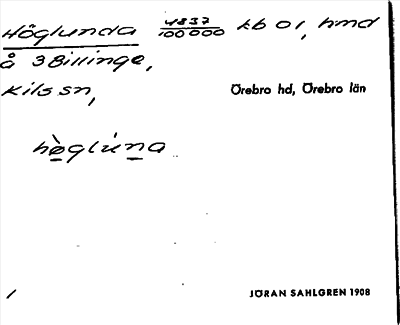 Höglunda 4837/100000 kb 01, hmd
å 3 Billinge,
Kils sn,
Örebro hd, Örebro län
hø̀glúna
1
JÖRAN SAHLGREN 1908